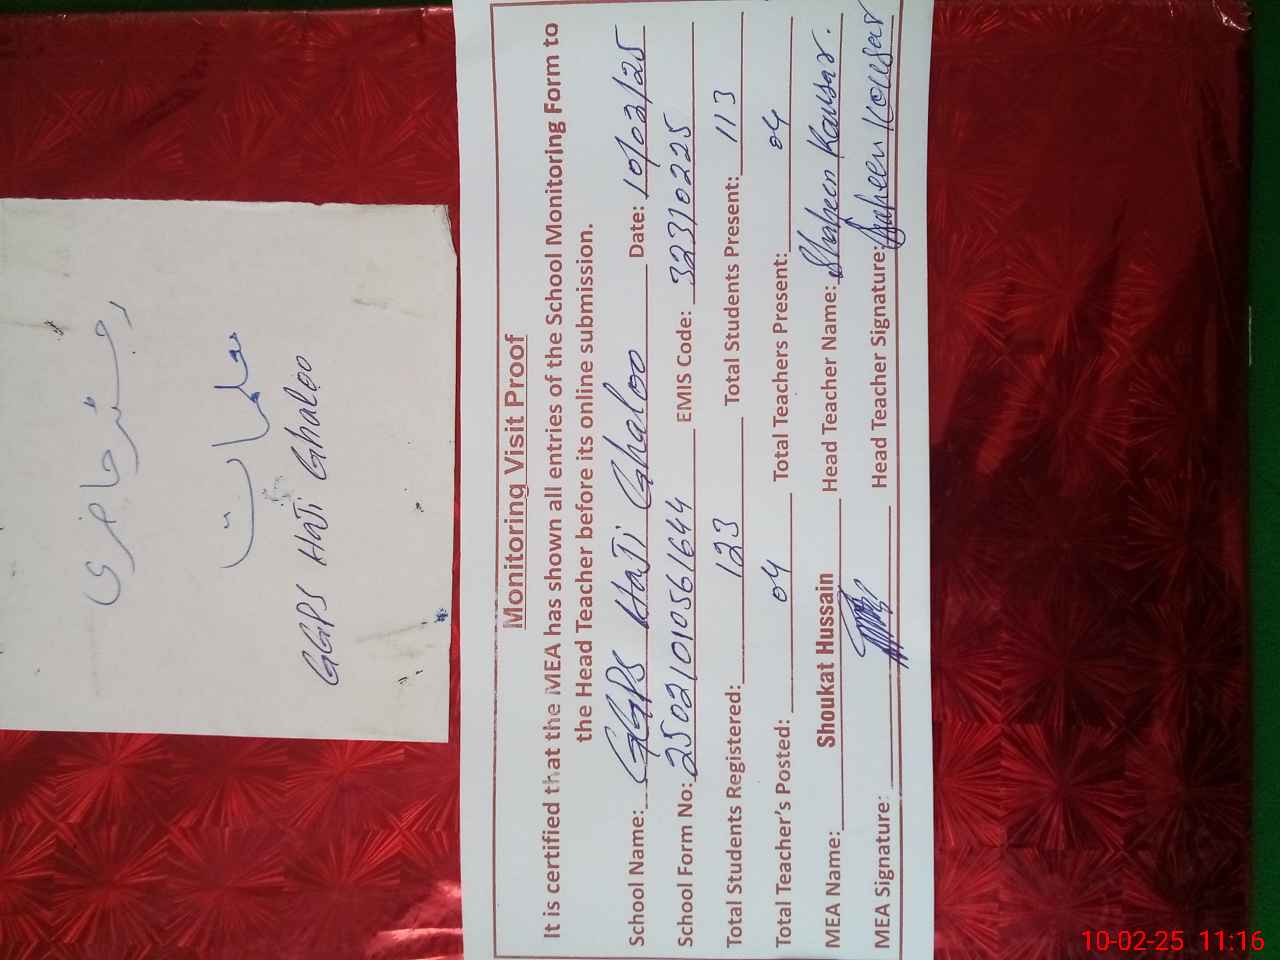 رجسٹر حاضری
معلمات
GGPS HaJi Ghaloo
Monitoring Visit Proof
It is certified that the MEA has shown all entries of the School Monitoring Form to
the Head Teacher before its online submission.
School Name: GGPS HaJi Ghaloo Date: 10/02/25
School Form No: 25021010561644 EMIS Code: 32310225
Total Students Registered: 123 Total Students Present: 113
Total Teacher's Posted: 04 Total Teachers Present: 04
MEA Name: Shoukat Hussain Head Teacher Name: Shaheen Kausar.
MEA Signature: Head Teacher Signature: Shaheen Kousar
10-02-25 11:16